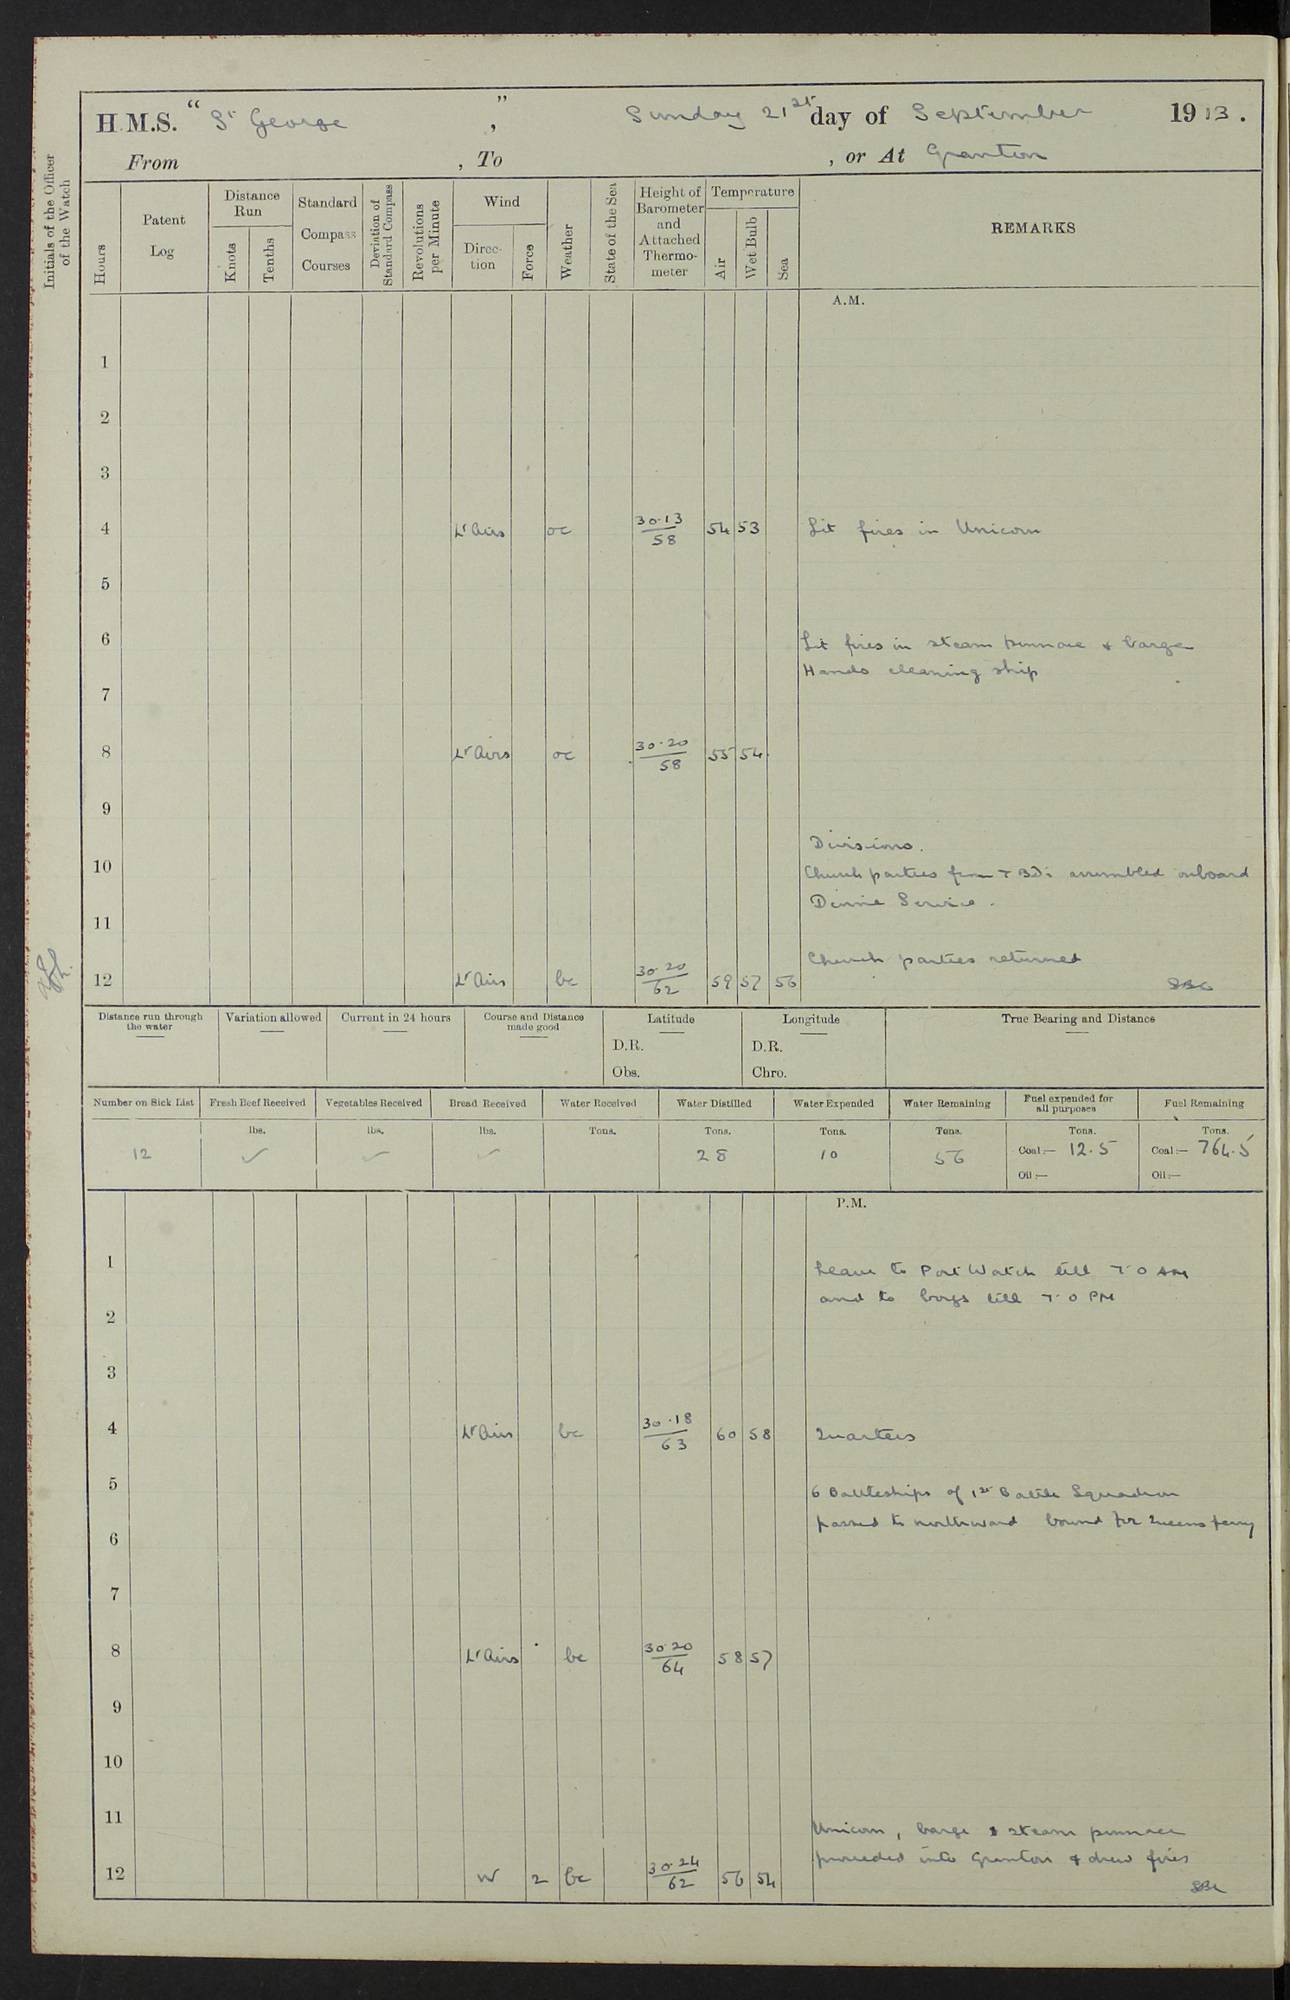 H.M.S. "St George", Sunday 21st day of September 1913.
From , To , or At Granton
Initials of the Officer of the Watch
Hours
Patent Log
Distance Run
Knots
Tenths
Standard Compass Courses
Deviation of Standard Compass
Revolutions per Minute
Wind
Direction
Force
Weather
State of the Sea
Height of Barometer and Attached Thermometer
Temperature
Air
Wet Bulb
Sea
REMARKS
A.M.
1
2
3
4 Lt Airs oc 30.13/58 54 53 Lit fires in Unicorn
5
6 Lit fires in steam pinnace & barge
Hands cleaning ship
7
8 Lt Airs oc 30.20/58 55 54
9
Divisions.
10 Church parties from TBDs assembled onboard
Divine Service.
11
Church parties returned
12 Lt Airs bc 30.20/62 59 57 56
Distance run through the water
Variation allowed
Current in 24 hours
Course and Distance made good
Latitude
D.R.
Obs.
Longitude
D.R.
Chro.
True Bearing and Distance
Number on Sick List
Fresh Beef Received
Vegetables Received
Bread Received
Water Received
Water Distilled
Water Expended
Water Remaining
Fuel expended for all purposes
Fuel Remaining
lbs. lbs. lbs. Tons. Tons. Tons. Tons. Tons. Tons.
12 ✓ ✓ ✓ 28 10 56 Coal:— 12.5 Coal:— 764.5
Oil:— Oil:—
P.M.
1 Leave to Port Watch till 7.0 AM
and to boys till 7.0 PM
2
3
4 Lt Airs bc 30.18/63 60 58 Quarters
5 6 Battleships of 1st Battle Squadron
passed to northward bound for Queensferry
6
7
8 Lt Airs bc 30.20/64 58 57
9
10
11 Unicorn, barge & steam pinnace
proceeded into Granton & drew fires
12 W 2 bc 30.24/62 56 54